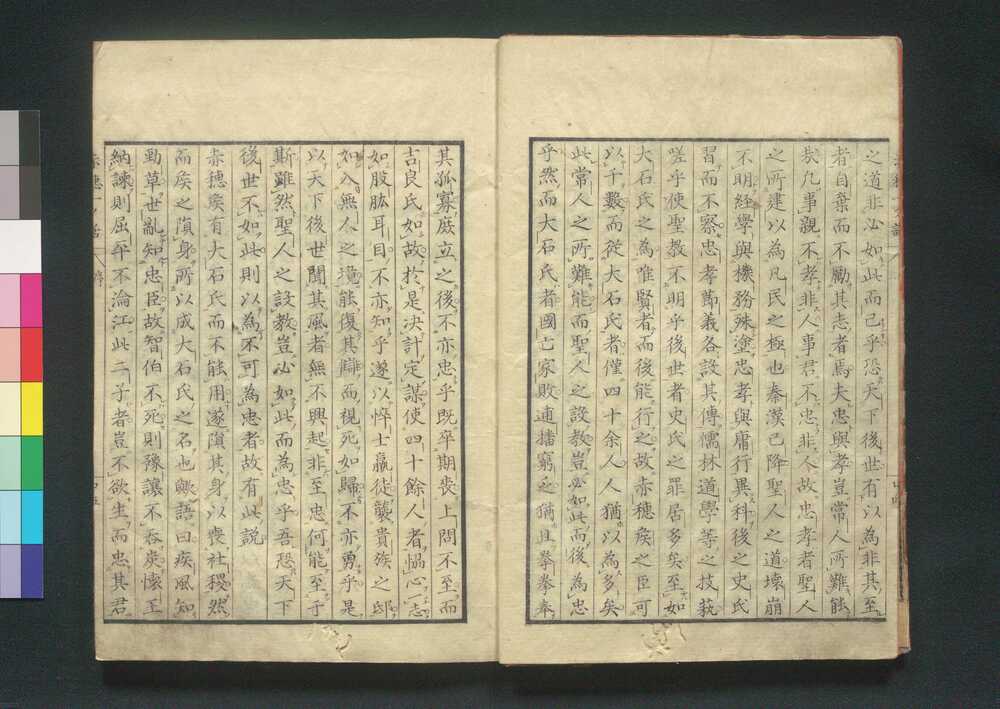 之道非必如此而已乎恐天下後世有以為非其至
者自棄而不勵其志者焉夫忠與孝豈常人所難能
哉凡事親不孝非人事君不忠非人故忠孝者聖人
之所建以為凡民之極也秦漢已降聖人之道壞崩
不明經學與機務殊塗忠孝與庸行異科後之史氏
習而不察忠孝節義各設其傳儒林道學等之技蓺
嗟乎使聖教不明乎後世者史氏之罪居多矣至如
大石氏之為唯賢者而後能行之故赤穗矦之臣可
以千數而從大石氏者僅四十余人人猶以為多矣
此常人之所難能而聖人之設教豈必如此而後為忠
乎然而大石氏者國亡家敗逋播窮乏猶且拳拳奉
其孤寡庭立之後不亦忠乎既卒期喪上問不至而
吉良氏如故於是決計定謀使四十餘人者恊心一志
如股肱耳目不亦知乎遂以悴士羸徒襲貴族之邸
如入無人之境能復其讎而視死如歸不亦勇乎是
以天下後世聞其風者無不興起非至忠何能至于
斯雖然聖人之設教豈必如此而為忠乎吾恐天下
後世不如此則以為不可為忠者故有此説
赤穗矦有大石氏而不能用遂隕其身以喪社稷然
而矦之隕身所以成大石氏之名也歟語曰疾風知
勁草世亂知忠臣故智伯不死則豫讓不吞炭懷王
納諫則屈平不淪江此二子者豈不欲生而忠其君